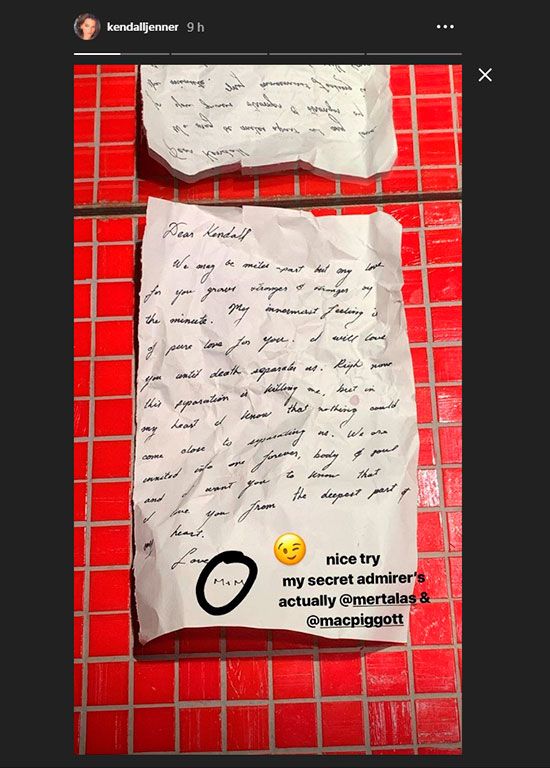 kendalljenner 9 h
Dear Kendall
We may be miles -part but my love
for you grows stronger & stronger by
the minute. My innermost feeling is
of pure love for you. I will love
you until death separates us. Righ now
this separation is killing me, but in
my heart I know that nothing could
come close to separating us. We are
united into one forever, body & soul
and I want you to know that
I love you from the deepest part of
my heart.
Love
M+M
nice try
my secret admirer's
actually @mertalas &
@macpiggott